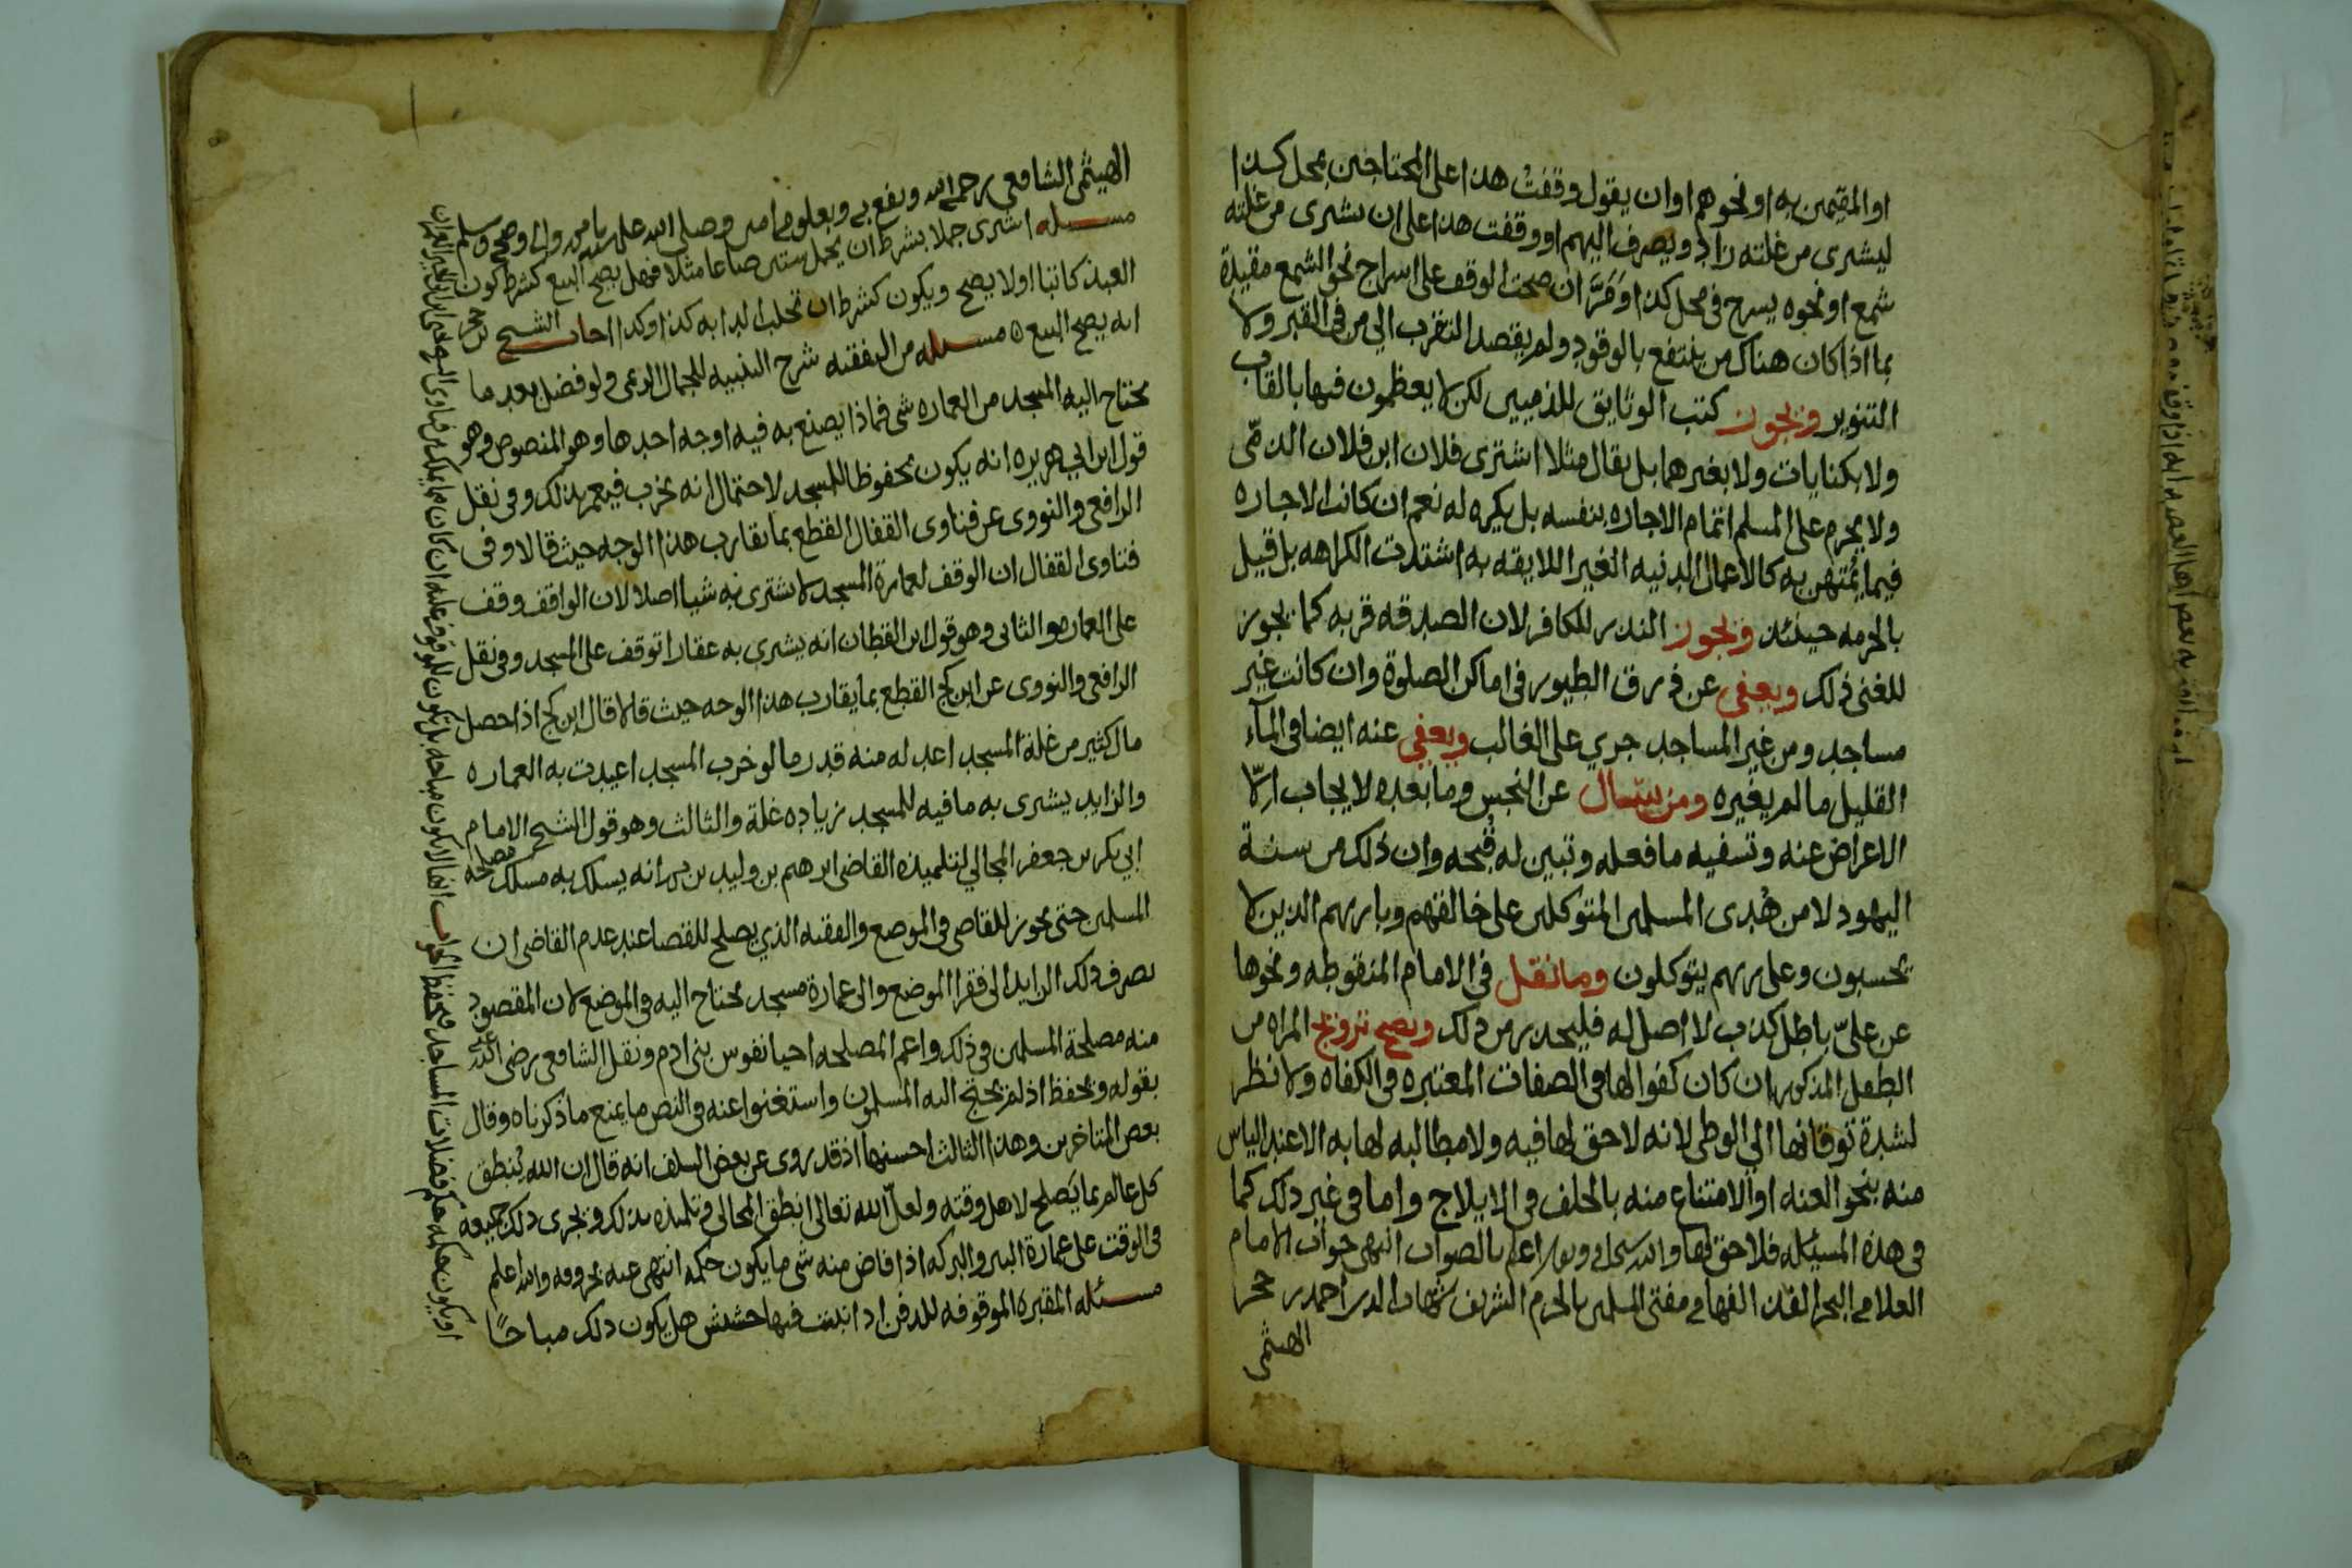 او المقيمين به او نحوهم او ان يقول وقفت هذا على المحتاجين بمحل كذا
ليشترى من غلته زاد ويصرف اليهم او وقفت هذا على ان يشترى من غلته
شمع او نحوه يسرج فى محل كذا او مَرَّ ان صحت الوقف على اسراج نحو الشمع مقيدة
بما اذا كان هناك من ينتفع بالوقود ولم يقصد التقرب الي من فى القبر ولا
التنوير ويجوز كتب الوثايق للذميين لكن لا يعظمون فيها بالقاب
ولا بكنايات ولا بغيرهما بل يقال مثلا اشترى فلان ابن فلان الذمّى
ولا يحرم على المسلم اتمام الاجاره بنفسه بل يكره له نعم ان كانت الاجاره
فيما يُمتهن به كالاعمال الدنيه الغير اللايقه به اشتدت الكراهه بل قيل
بالحرمه حينئذ ويجوز النذر للكافر لان الصدقه قربه كما يجوز
للغنى ذلك ويعفى عن ذرق الطيور فى اماكن الصلوة وان كانت غير
مساجد ومن غير المساجد جري على الغالب ويعفى عنه ايضا فى المآء
القليل ما لم يغيره ومن يسّال عن النجس وما بعده لا يجاب الّا
الاعراض عنه وتسفيه ما فعله وتبين له قُبحه وان ذلك من سنة
اليهود لا من هُدى المسلمين المتوكلين على خالقهم وباريهم الذين لا
يحسبون وعلى ربهم يتوكلون وما نقل فى الامام المنقوطه ونحوها
عن علىّ باطل كذب لا اصل له فليحذر من ذلك ويصح تزويج المراه من
الطفل المذكور ان كان كفوا لها فى الصفات المعتبره فى الكفاه ولا نظر
لشدة توقانها الي الوطى لانه لا حق لها فيه ولا مطالبه لها به الا عند الياس
منه بنحو العنه او الامتناع منه بالحلف فى الايلاج واما فى غير ذلك كما
فى هذه المسئله فلا حق لها والله سبحانه وتعالى اعلم بالصواب انتهى جواب الامام
العلامه البحر الفهامه مفتى المسلمين بالحرم الشريف شهاب الدين احمد بن حجر
الهيثمى
الهيثمى الشافعى رحمه الله ونفع به وبعلومه امين وصلى الله على سيدنا محمد واله وصحبه وسلم
مسئله اشترى جملا بشرط ان يحمل ستين صاعا مثلا فهل يصح البيع كشرط كون
العبد كاتبا اولا يصح ويكون كشرط ان تحلب الدابه كذا وكذا اجاب الشيخ بن حجر
انه يصح البيع ه مسئله من التفقيه شرح التنبيه للجمال الريمى ولو فضل بعد ما
يحتاج اليه المسجد من العماره شى فماذا يصنع به فيه اوجه احدها وهو المنصوص وهو
قول ابن ابي هريره انه يكون محفوظا للمسجد لاحتمال انه يخرب فيعمر بذلك وفى نقل
الرافعى والنووى عن فتاوى القفال القطع بما يقارب هذا الوجه حيث قالا وفى
فتاوى القفال ان الوقف لعمارة المسجد لا يشترى به شيا اصلا لان الواقف وقف
على العماره والثانى وهو قول ابن القطان انه يشترى به عقارا توقف على المسجد وفى نقل
الرافعى والنووى عن ابن كج القطع بما يقارب هذا الوجه حيث قالا قال ابن كج اذا حصل
مال كثير من غلة المسجد اعد له منه قدر ما لو خرب المسجد اعيدت به العماره
والزايد يشترى به ما فيه للمسجد زياده غلة والثالث وهو قول الشيخ الامام
ابي بكر بن جعفر المحالي لتلميذه القاضى ابرهيم بن وليد بن انه يسلك به مسلك مصلحة
المسلمين حتى يجوز للقاضى فى الموضع والفقيه الذي يصلح للقضا عند عدم القاضى ان
يصرف ذلك الزايد الى فقرا الموضع والى عمارة مسجد يحتاج اليه فى الموضع لان المقصود
منه مصلحة المسلمين فى ذلك واعم المصلحه احيا نفوس بنى ادم ونقل الشافعى رضى الله عنه
بقوله ويحفظ اذ لم يحتج اليه المسلمون واستغنوا عنه فى النص ما يمنع ما ذكرناه وقال
بعض المتاخرين وهذا الثالث احسنها اذ قد روى عن بعض السلف انه قال ان الله يُنطق
كل عالم بما يَصلح لاهل وقته ولعلّ الله تعالى انطق المحالى وتلميذه بذلك ويجرى ذلك جميعه
فى الوقت على عمارة البير والبركه اذا فاض منه شى ما يكون حكمه انتهى عنه بحروفه والله اعلم
مسئله المقبره الموقوفه للدفن اذا نبت فيها حشيش هل يكون ذلك مباحًا
او يكون حكمه حكم فضلات المساجد فيحفظ الجواب انها لا يكون مباحه بل تكون للموقوف عليه ان كان مما يملك من فتاوى